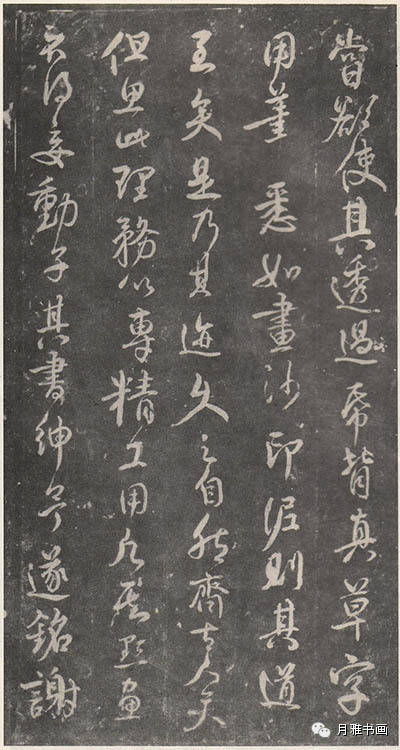 嘗欲使其透過帋背真草字
用筆悉如畫沙印泥則其道
至矣是乃其迹久之自然齊古人矣
但思此理務以專精工用點畫
不得妄動子其書紳予遂銘謝
月雅书画